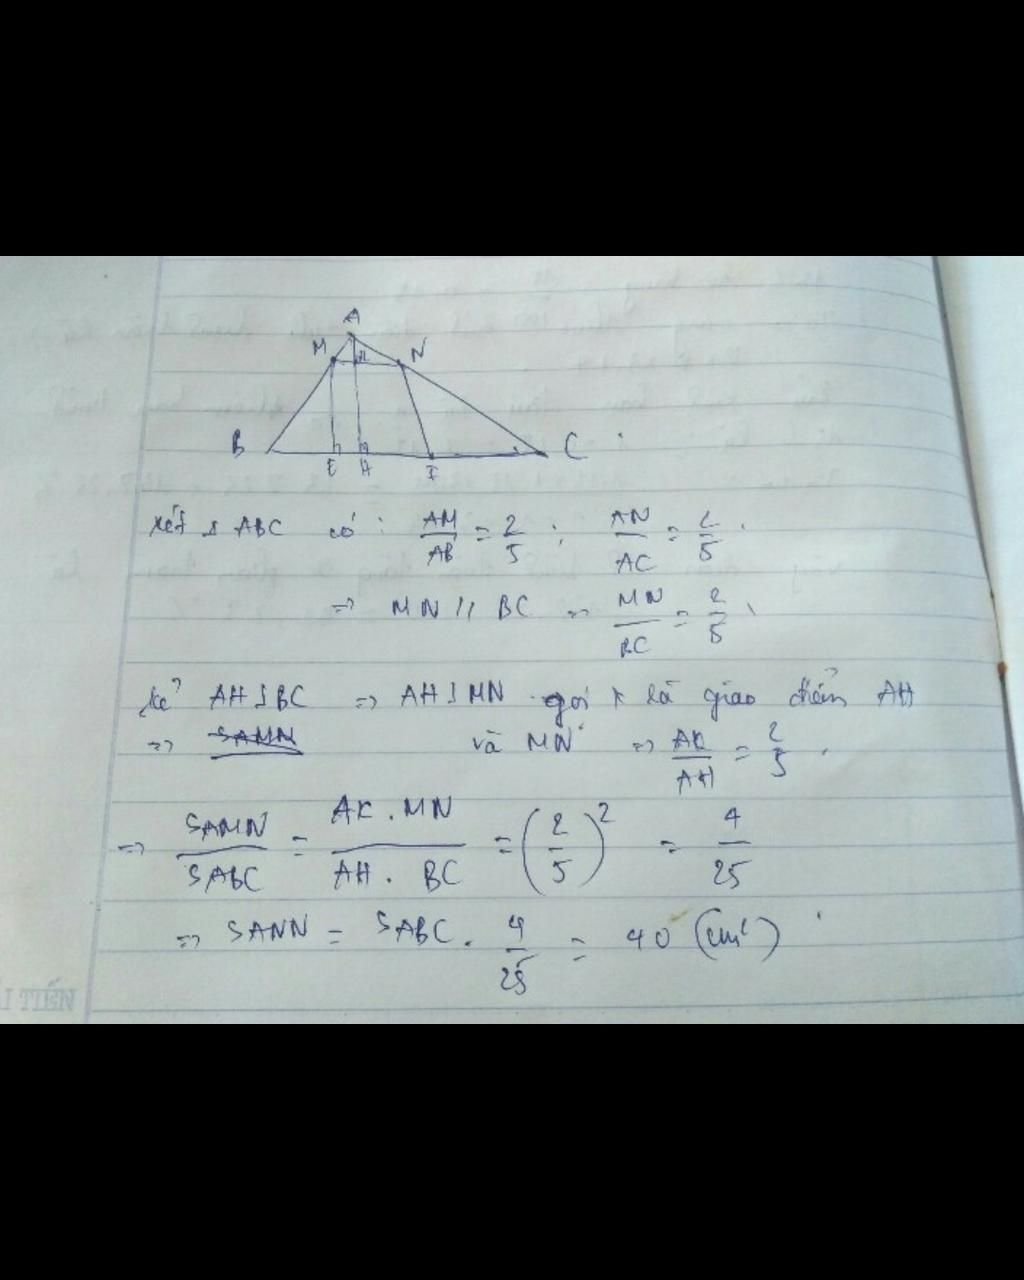 A
M K N
B C
E H I
Xét Δ ABC có : AM/AB = 2/5 ; AN/AC = 2/5 .
=> MN // BC => MN/BC = 2/5
kẻ AH ⊥ BC => AH ⊥ MN gọi K là giao điểm AH
=> SAMN và MN => AK/AH = 2/5 .
=> SAMN/SABC = AK . MN/AH . BC = (2/5)² = 4/25
=> SANN = SABC . 4/25 = 40 (cm²)
I TIẾN